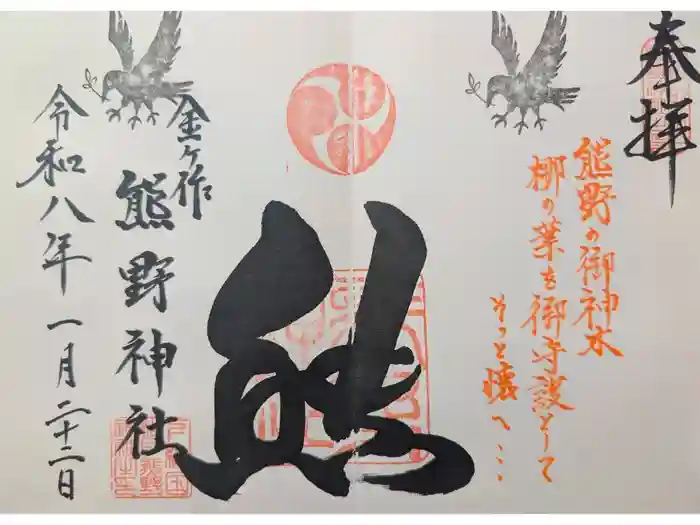 奉拝
熊野の御神木
梛の葉を御守護として
そっと懐へ…
熊
金ヶ作
熊野神社
令和八年一月二十二日